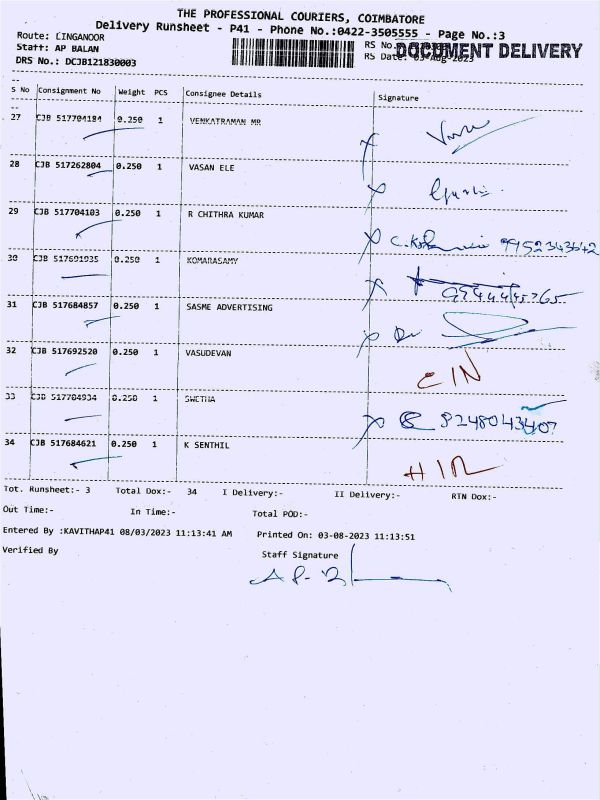 THE PROFESSIONAL COURIERS, COIMBATORE
Delivery Runsheet - P41 - Phone No.:0422-3505555 - Page No.:3
Route: LINGANOOR
Staff: AP BALAN
DRS No.: DCJB121830003
RS No.
RS Date: 03-Aug-2023
DOCUMENT DELIVERY
S No Consignment No Weight PCS Consignee Details Signature
27 CJB 517704184 0.250 1 VENKATRAMAN MR
28 CJB 517262804 0.250 1 VASAN ELE
29 CJB 517704103 0.250 1 R CHITHRA KUMAR 9952343642
30 CJB 517691935 0.250 1 KOMARASAMY
31 CJB 517684857 0.250 1 SASME ADVERTISING
32 CJB 517692520 0.250 1 VASUDEVAN CIN
33 CJB 517704934 0.250 1 SWETHA 8248043407
34 CJB 517684621 0.250 1 K SENTHIL
Tot. Runsheet:- 3 Total Dox:- 34 I Delivery:- II Delivery:- RTN Dox:-
Out Time:- In Time:- Total POD:-
Entered By :KAVITHAP41 08/03/2023 11:13:41 AM Printed On: 03-08-2023 11:13:51
Verified By Staff Signature